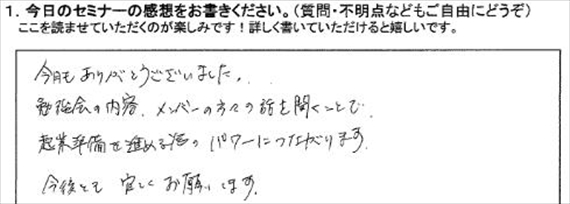 1. 今日のセミナーの感想をお書きください。(質問・不明点などもご自由にどうぞ)
ここを読ませていただくのが楽しみです!詳しく書いていただけると嬉しいです。
今日もありがとうございました。
勉強会の内容、メンバーの方々の話を聞くことで、
起業準備を進める上の パワーにつながります。
今後とも 宜しくお願いします。